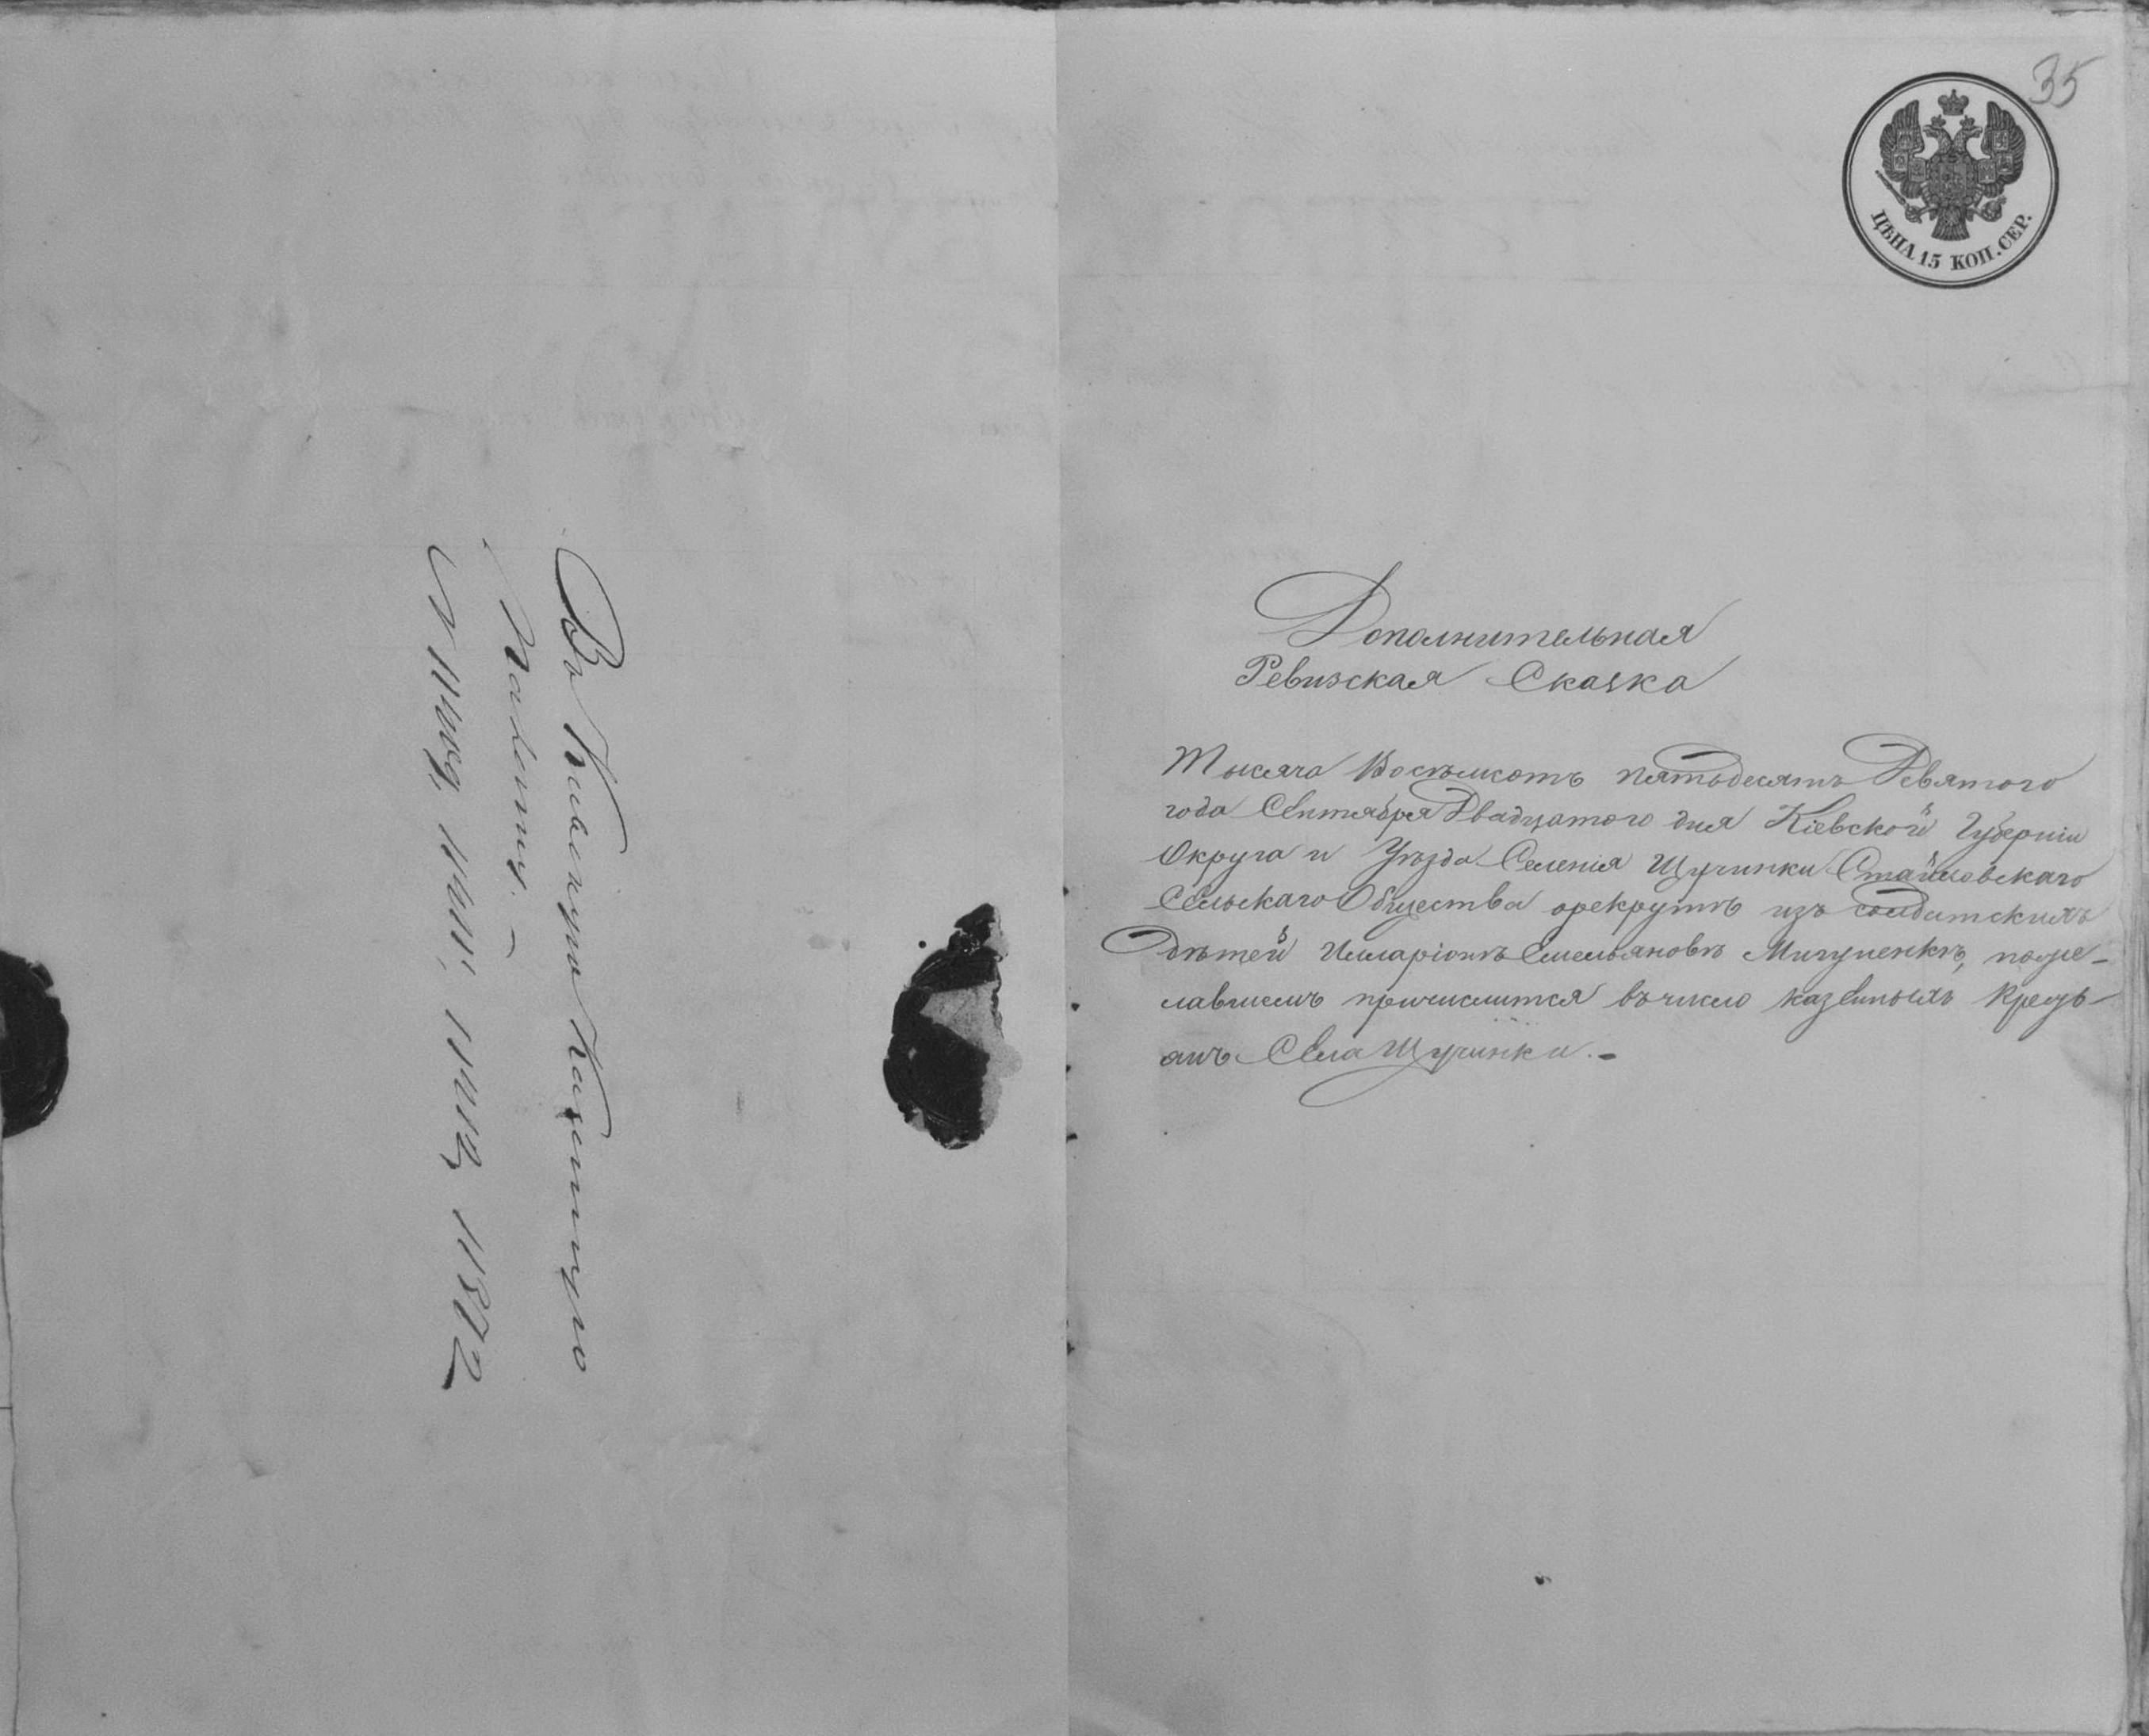 Въ Кіевскую Казенную
Палату.
35
ЦѢНА 15 КОП. СЕР.
Дополнительная
Ревизская Сказка
Тысяча Восемьсотъ пятьдесятъ Девятого
года Сентября Двадцатого дня Кіевской Губерніи
Округа и Уѣзда Селенія Щучинки Стайковскаго
Сельскаго Общества орекрутѣ изъ солдатскихъ
Дѣтей Илларіонѣ Емельяновѣ Мигуненкѣ, поже-
лавшемъ причислится въ число казенныхъ Кресть-
янъ Села Щучинки.-